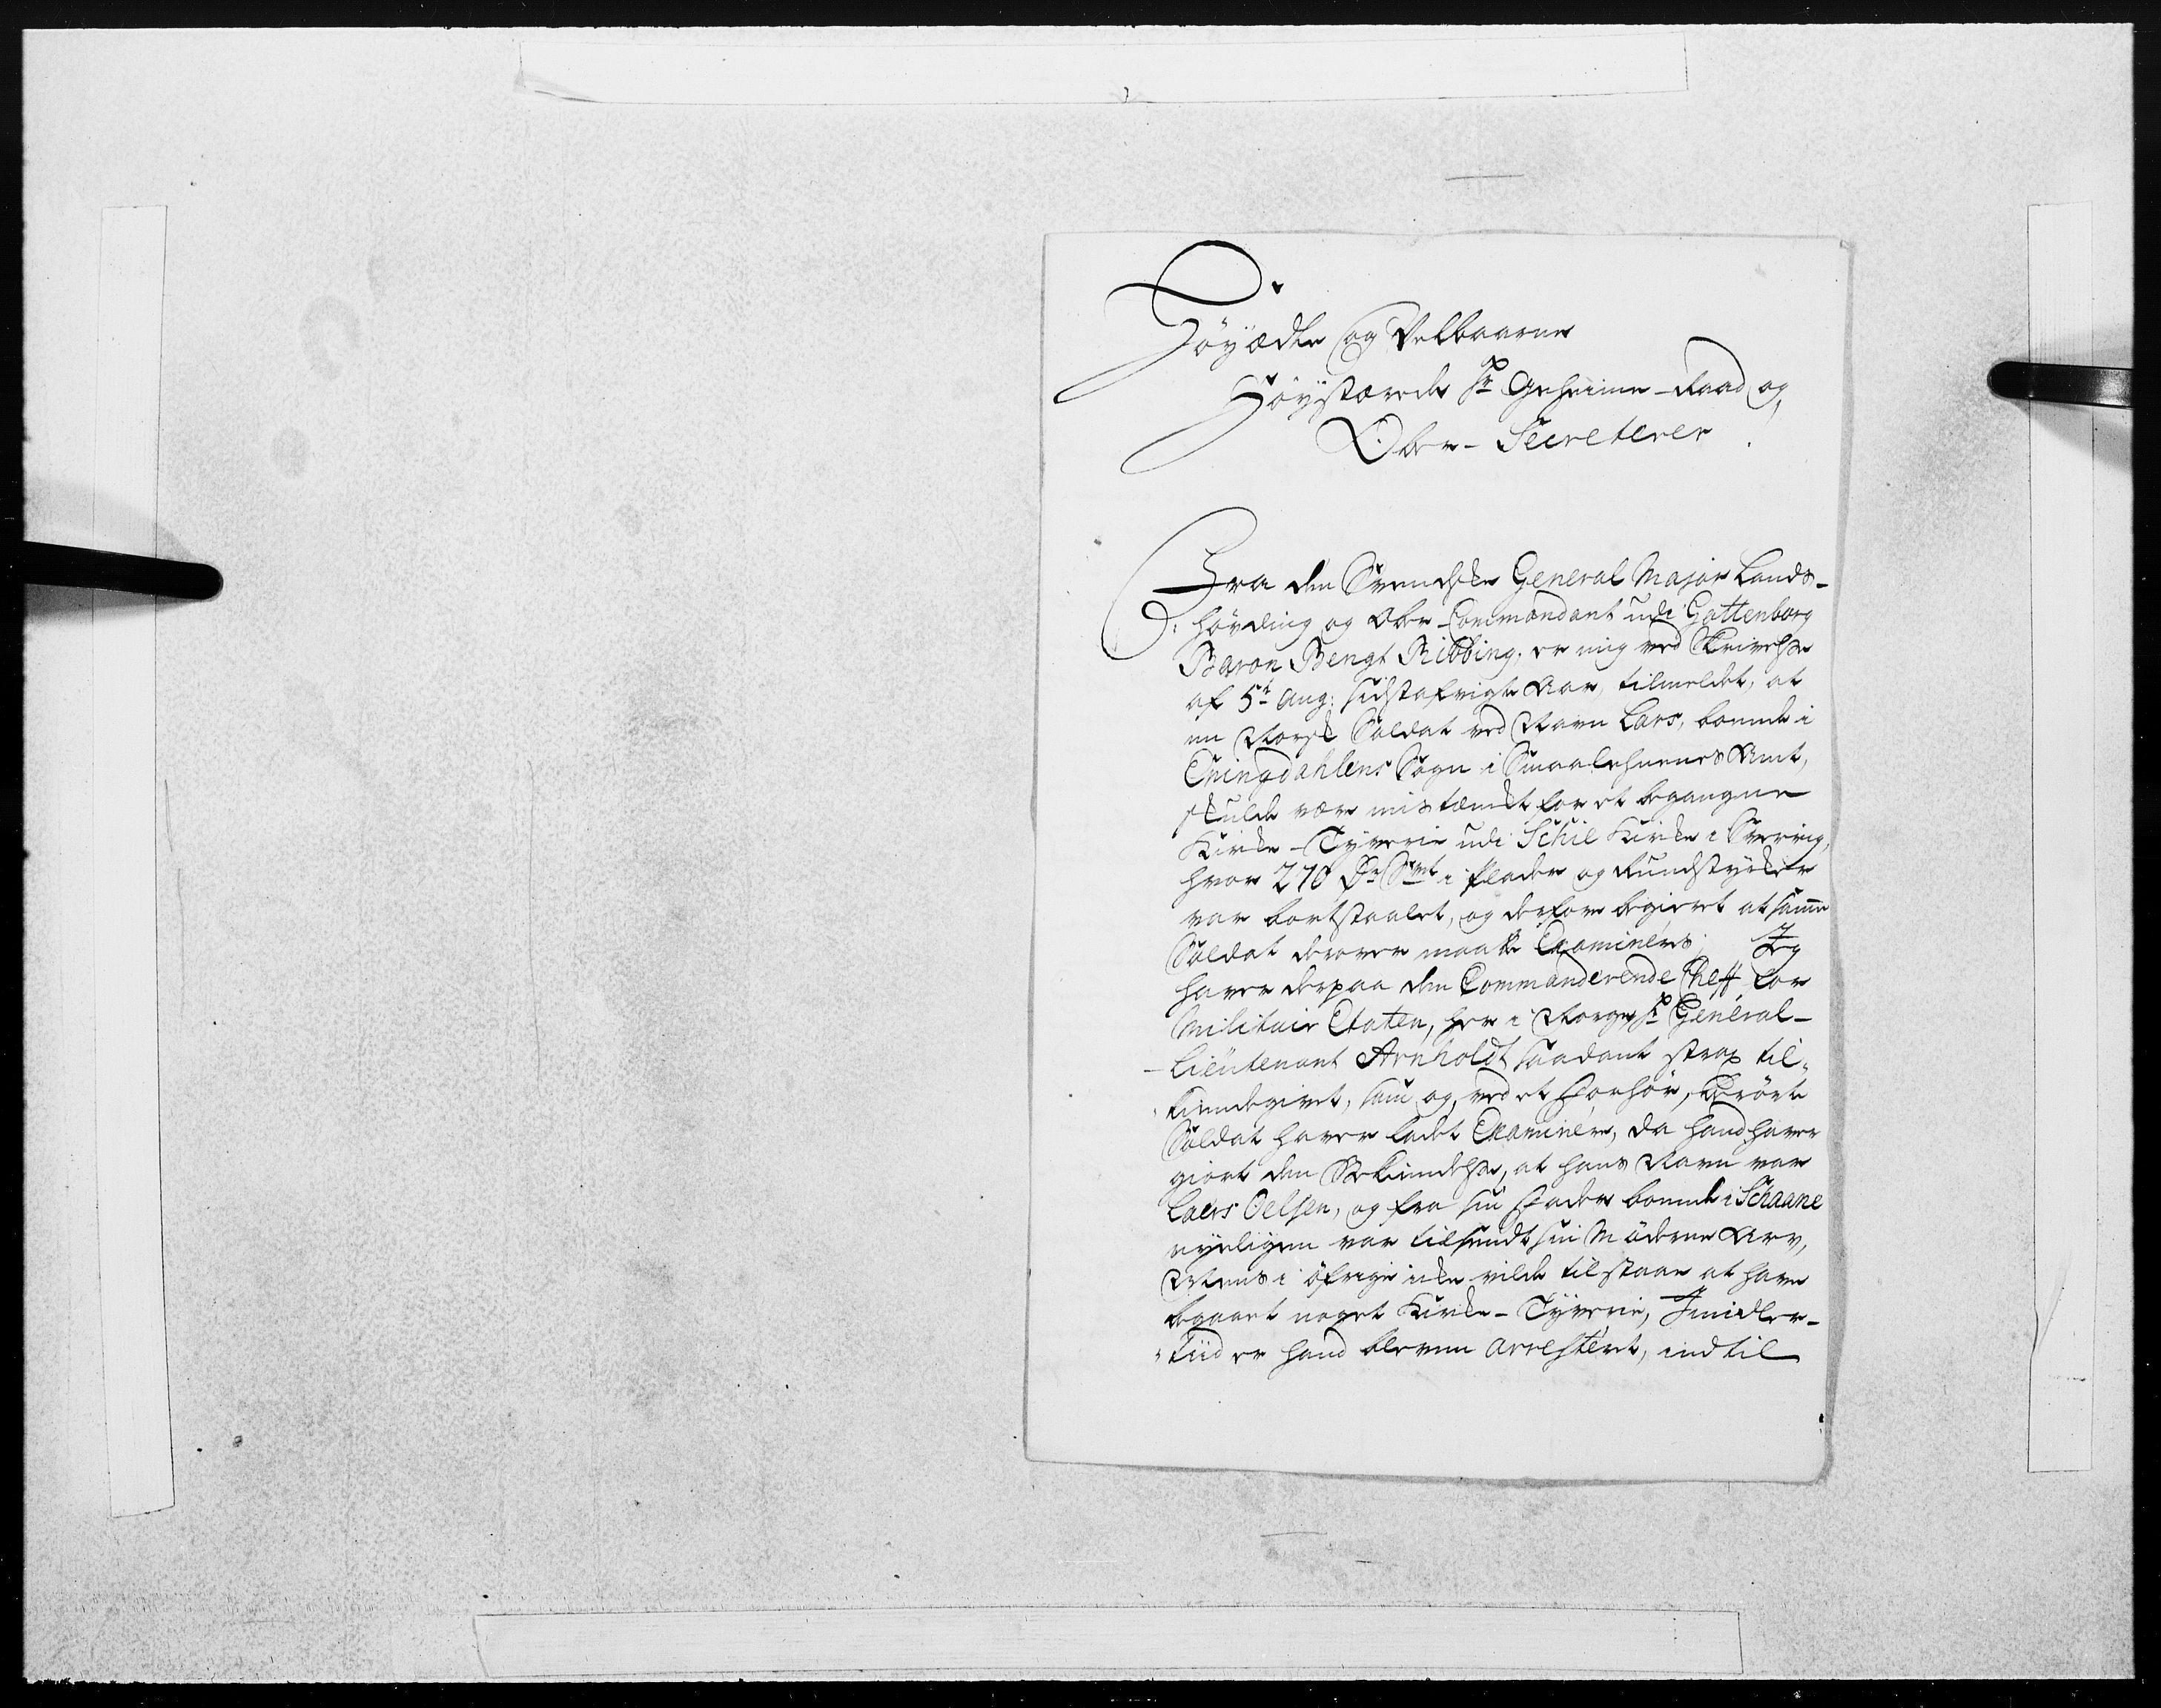 Höyædle og Velbaarne
Höystærede Hr Geheime-Raad og
Ober-Secreterer.
Fra den Svendske General Major Lands-
höfding og Ober-Commandant udi Gottenborg
Baron Bengt Ribbing, er mig ved Skrivelse
af 5te Aug: sidstafvigte Aar, tilmeldet, at
en Norsk Soldat ved Navn Lars, boende i
Eningdahlens Sogn i Smaalehnenes Amt,
skulde være mistænckt for et begangne
Kirke-Tyverie udi Schie Kirke i Sverrig,
hvor 270 Dr Smt i Plader og Rundstyker
var bortstaalet, og derfore begieret at samme
Soldat derover maatte Examineres; Jeg
haver derpaa den Commanderende Cheff for
Militair Etaten, her i Norge Hr General-
Lieutenant Arnholdt saadant strax til-
kiendegivet, som og, ved et Forhör, berörte
Soldat haver ladet Examinere, da hand haver
giort den Bekiendelse, at hans Navn var
Laers Oelsen, og fra sin Fader boende i Schaane
nyeligen var tilsendt sin Möderne Arv,
Mens i öfrige icke vilde tilstaae at have
begaaet noget Kirke-Tyverie, Imidler-
tiid er hand bleven arresteret, indtil